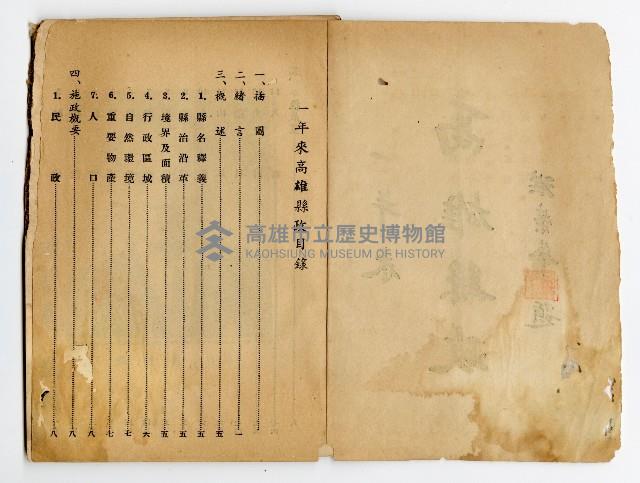 一年來高雄縣政目錄
一、插圖
二、緒言……一
三、概述……五
1. 縣名釋義……五
2. 縣治沿革……五
3. 境界及面積……五
4. 行政區域……六
5. 自然環境……七
6. 重要物產……七
7. 人口……八
四、施政概要……八
1. 民政……八
高雄縣政
一年來
題
高雄市立歷史博物館
KAOHSIUNG MUSEUM OF HISTORY